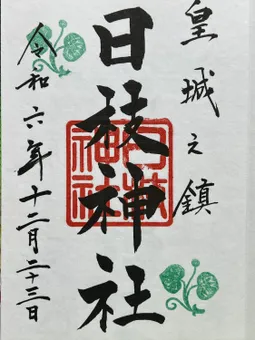 皇城之鎮
日枝神社
令和六年十二月二十三日
日枝神社